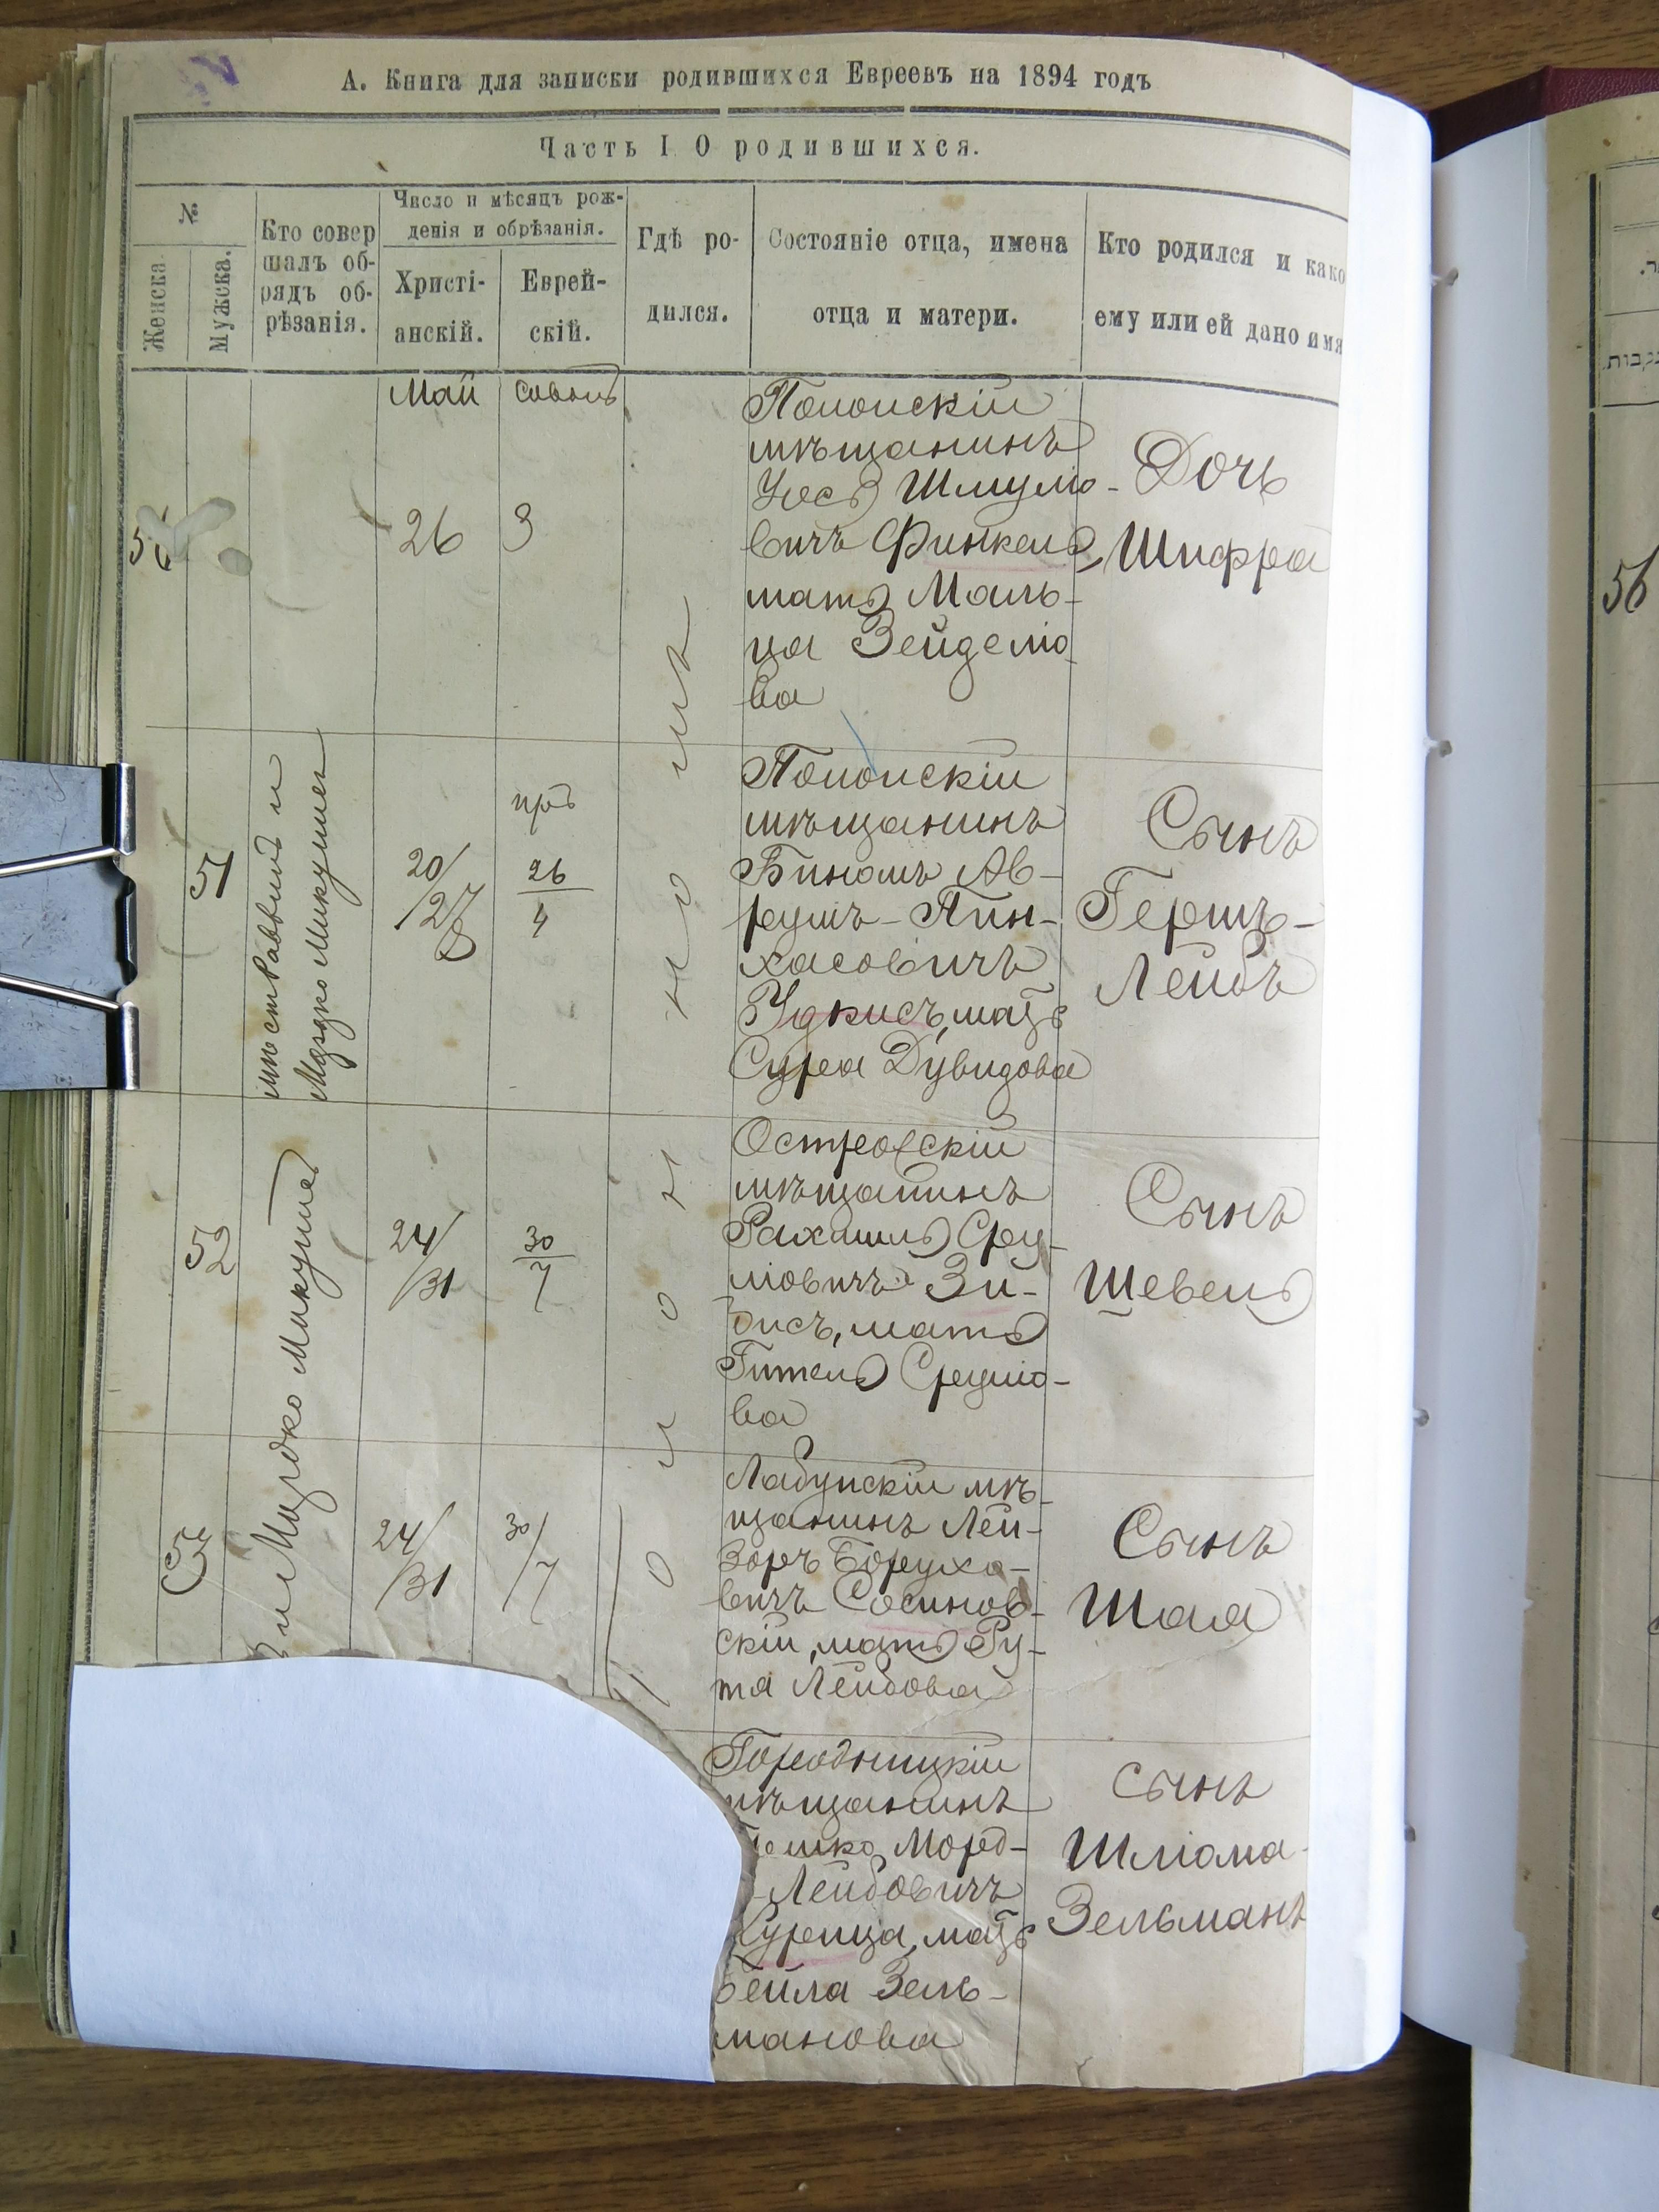 А. Книга для записки родившихся Евреевъ на 1894 годъ
Часть I О родившихся.
№
Женска.
Мужска.
Кто совер
шалъ об-
рядъ об-
рѣзанія.
Число и мѣсяцъ рож-
денія и обрѣзанія.
Христі-
анскій.
Еврей-
скій.
Гдѣ ро-
дился.
Состояніе отца, имена
отца и матери.
Кто родился и како
ему или ей дано имя
Май
26
3
Полонскій
мѣщанинъ
Іось Шмулю-
вичъ Финкель,
мать Маль-
ца Зейделіо
ва
Дочь
Шифра
56
51
мѣс Раввинъ и
Мордко Микушер
20/
/28
26
4
Полонскій
мѣщанинъ
Биномъ Ав-
румъ-Пин-
хасовичъ
Удкисъ, мать
Сура Дувидова
Сынъ
Гершъ-
Лейбъ
52
и Мордко Микушер
24/
/31
30
7
Островскій
мѣщанинъ
Рахмиль Сру-
ліовичъ Зи-
бисъ, мать
Гитель Сруліо-
ва
Сынъ
Шевель
53
24/
/31
30/
/7
Полонномъ
Лабунскій мѣ-
щанинъ Лей-
зоръ Борухо-
вичъ Сосинов-
скій, мать Ру-
тя Лейбова
Сынъ
Шая
Городницкій
мѣщанинъ
Морд-
Лейбовичъ
Курица, мать
Бейла Зель-
манова
сынъ
Шліома-
Зельманъ